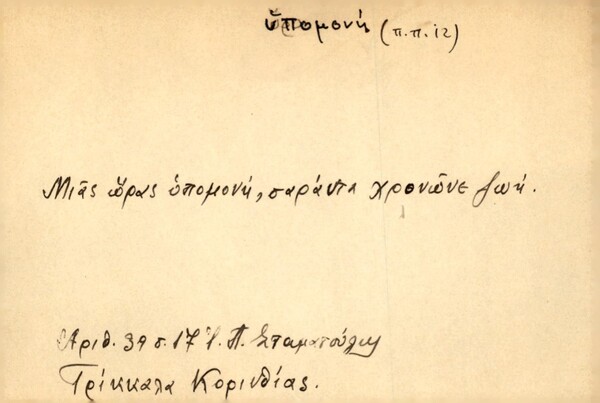 ὑπομονή (π.π. 12)
Μιᾶς ὥρας ὑπομονή, σαράντα χρονῶνε ζωή.
Ἀριθ. 39 σ. 17 Ἰ. Π. Σταματούλη
Τρίκκαλα Κορινθίας.